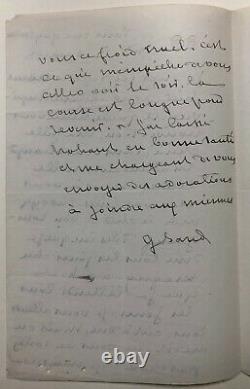 vous ce froid cruel. c'est
ce qui m'empêche de vous
aller voir le soir, la
course est longue pour
revenir. J'ai laissé
Nohant en bonne santé
et me chargeant de vous
envoyer des adorations
à joindre aux miennes
G Sand